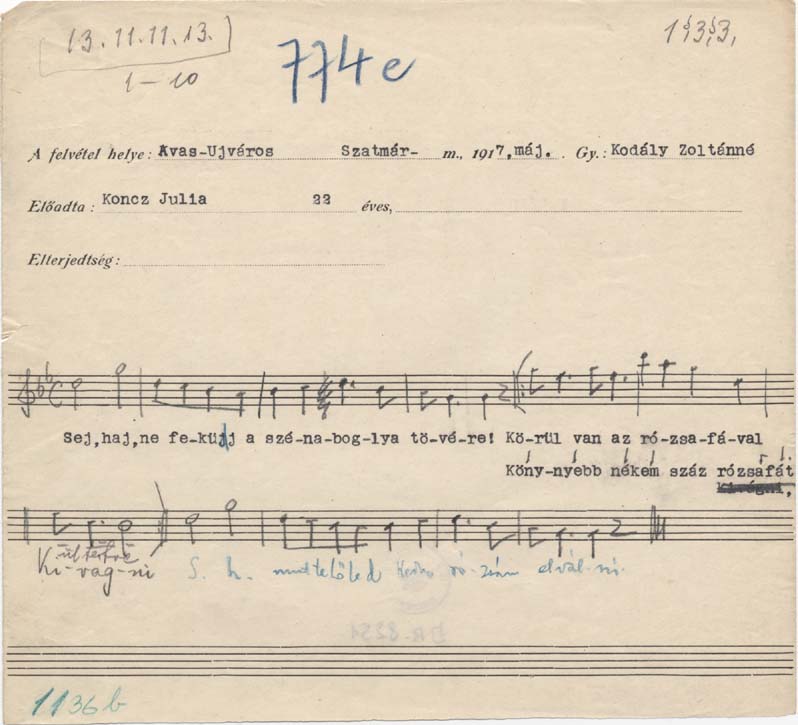 13.11.11.13.
1–10
774e
A felvétel helye: Avas-Ujváros Szatmár- m., 1917, máj. Gy.: Kodály Zoltánné
Előadta: Koncz Julia 22 éves,
Elterjedtség:
Sej,haj,ne fe-küdj a szé-na-bog-lya tö-vé-re! Kö-rül van az ró-zsa-fá-val
Köny-nyebb nékem száz rózsafát
kivágni,
ültetve
Ki-vág-ni S. h. mint tőled kedves ró-zsám elvál-ni.
1136b